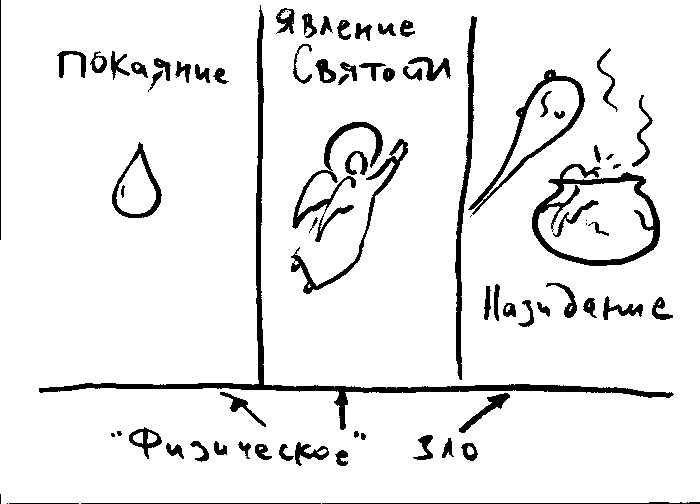 Покаяние
Явление
Святости
Назидание
"Физическое" зло